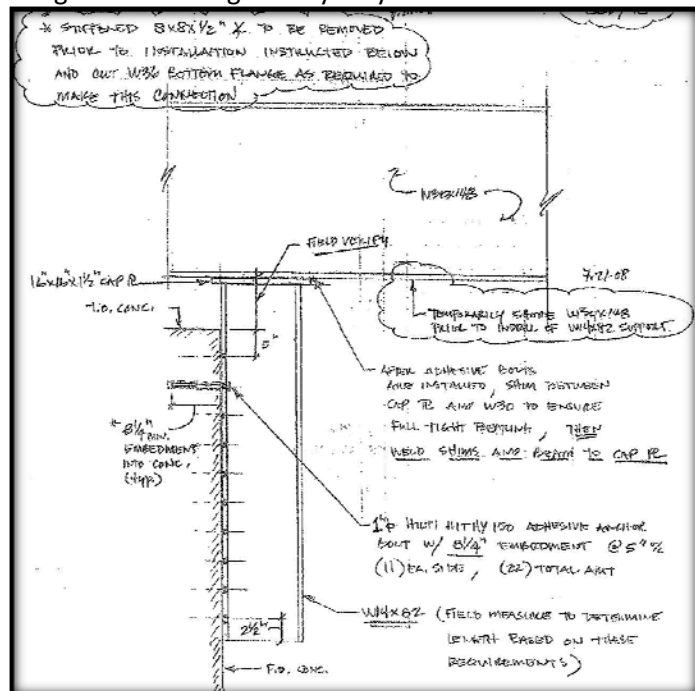 * STIFFENED 8x8x1/2" ∠ TO BE REMOVED
PRIOR TO INSTALLATION INSTRUCTED BELOW
AND CUT W36 BOTTOM FLANGE AS REQUIRED TO
MAKE THIS CONNECTION
FIELD VERIFY
16"x16"x1 1/2" CAP PL
T.O. CONC.
5"
7-21-08
TEMPORARILY SHORE
PRIOR TO INSTALL OF W14x82 SUPPORT
AFTER ADHESIVE BOLTS
ARE INSTALLED, SHIM BETWEEN
CAP PL AND W30 TO ENSURE
FULL TIGHT BEARING, THEN
WELD SHIMS AND BEAM TO CAP PL
* 8 1/4" MIN.
EMBEDMENT
INTO CONC.
(typ.)
1"φ HILTI HIT HY 150 ADHESIVE ANCHOR
BOLT W/ 8 1/4" EMBEDMENT @ 5" %
(11) EA. SIDE, (22) TOTAL AMT
W14x82 (FIELD MEASURE TO DETERMINE
LENGTH BASED ON THESE
REQUIREMENTS)
2 1/2"
F.O. CONC.